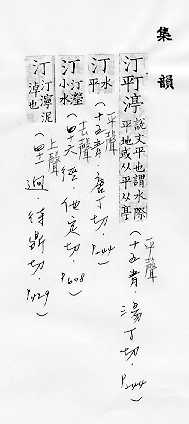 集韻
汀渟 說文平也謂水際平地或从平从亭 平聲 (十五青．湯丁切．P244)
汀 水平 平聲 (十五青．唐丁切．P244)
汀 汀瀅小水 (四十六徑．他定切．P608)
汀 汀濘泥淖也 上聲 (四十一迥．待鼎切．P429)